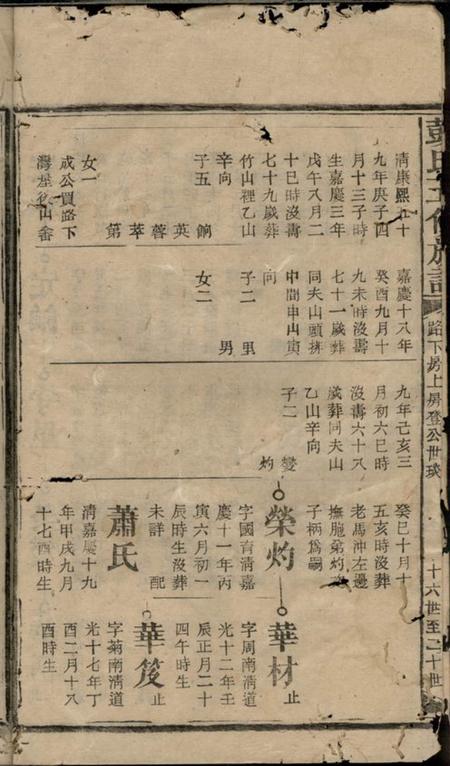 彭氏五修族譜
路下房上屏登公世琰
十六世至二十世
清康熙五十
九年庚子四
月十三子時
生嘉慶三年
戊午八月二
十巳時沒壽
七十九歲葬
竹山裡乙山
辛向
子五 餉 英 蓉 萃 第
女一
成公買路下
灣屋後山畬
嘉慶十八年
癸酉九月十
九未時沒壽
七十一歲葬
同夫山頭拼
中間申山寅
向
子二 里 男
女二
九年己亥三
月初六巳時
沒壽六十八
歲葬同夫山
乙山辛向
子二 燮 灼
癸巳十月十
五亥時沒葬
老馬沖左邊
撫胞弟灼
子柄爲嗣
榮灼
字國育清嘉
慶十一年丙
寅六月初一
辰時生沒葬
未詳 配
蕭氏
清嘉慶十九
年甲戌九月
十七酉時生
華材 止
字周南清道
光十二年壬
辰正月二十
四午時生
華笈 止
字菊南清道
光十七年丁
酉二月十八
酉時生